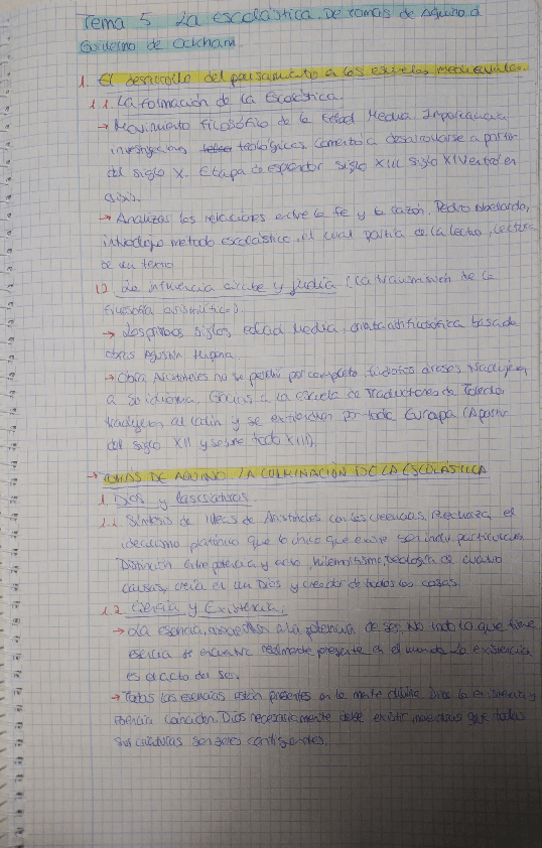 Tema 5 La escolástica. De Tomás de Aquino a
Guillermo de Ockham.
1. El desarrollo del pensamiento a las escuelas medievales.
1.1. La formación de la Escolástica.
→ Movimiento filosófico de la Edad Media. Importancia
investigacion teológicas comentó a desarrollarse a partir
del siglo X. Etapa de esplendor siglo XIII siglo XIV entró en
crisis.
→ Analizas las relaciones entre la fe y la razón. Pedro Abelardo,
introdujo metodo escolástico, el cual partía de la lectio, lectura
de un texto
La influencia árabe y judía (La transmisión de la
filosofía aristotélica).
→ Los primeros siglos edad Media, filosófica basada
obras Agustín Hipona.
→ Obra Aristóteles no se perdió por completo filósofos árabes tradujeron
a su idioma. Gracias a la escuela de Traductores de Toledo
tradujeron al latín y se extendieron por toda Europa (A partir
del siglo XII y sobre todo XIII).
→ TOMAS DE AQUINO. LA CULMINACIÓN DE LA ESCOLÁSTICA
1. Dios y las criaturas.
1.1. Síntesis de ideas de Aristóteles con las creencias, rechaza el
idealismo platónico que lo único que existe son individuos particulares
Distinción entre potencia y acto, hilemorfismo, teología de cuatro
causas, creía en un Dios y creador de todas las cosas.
1.2 Esencia y Existencia.
→ La esencia, a la potencia de ser, No todo lo que tiene
esencia se encuentra realmente presente en el mundo. La existencia
es el acto del ser.
→ Todas las esencias están presentes en la mente divina. Dios la existencia y
esencia coinciden. Dios necesariamente debe existir, mientras que todas
sus criaturas son seres contingentes.